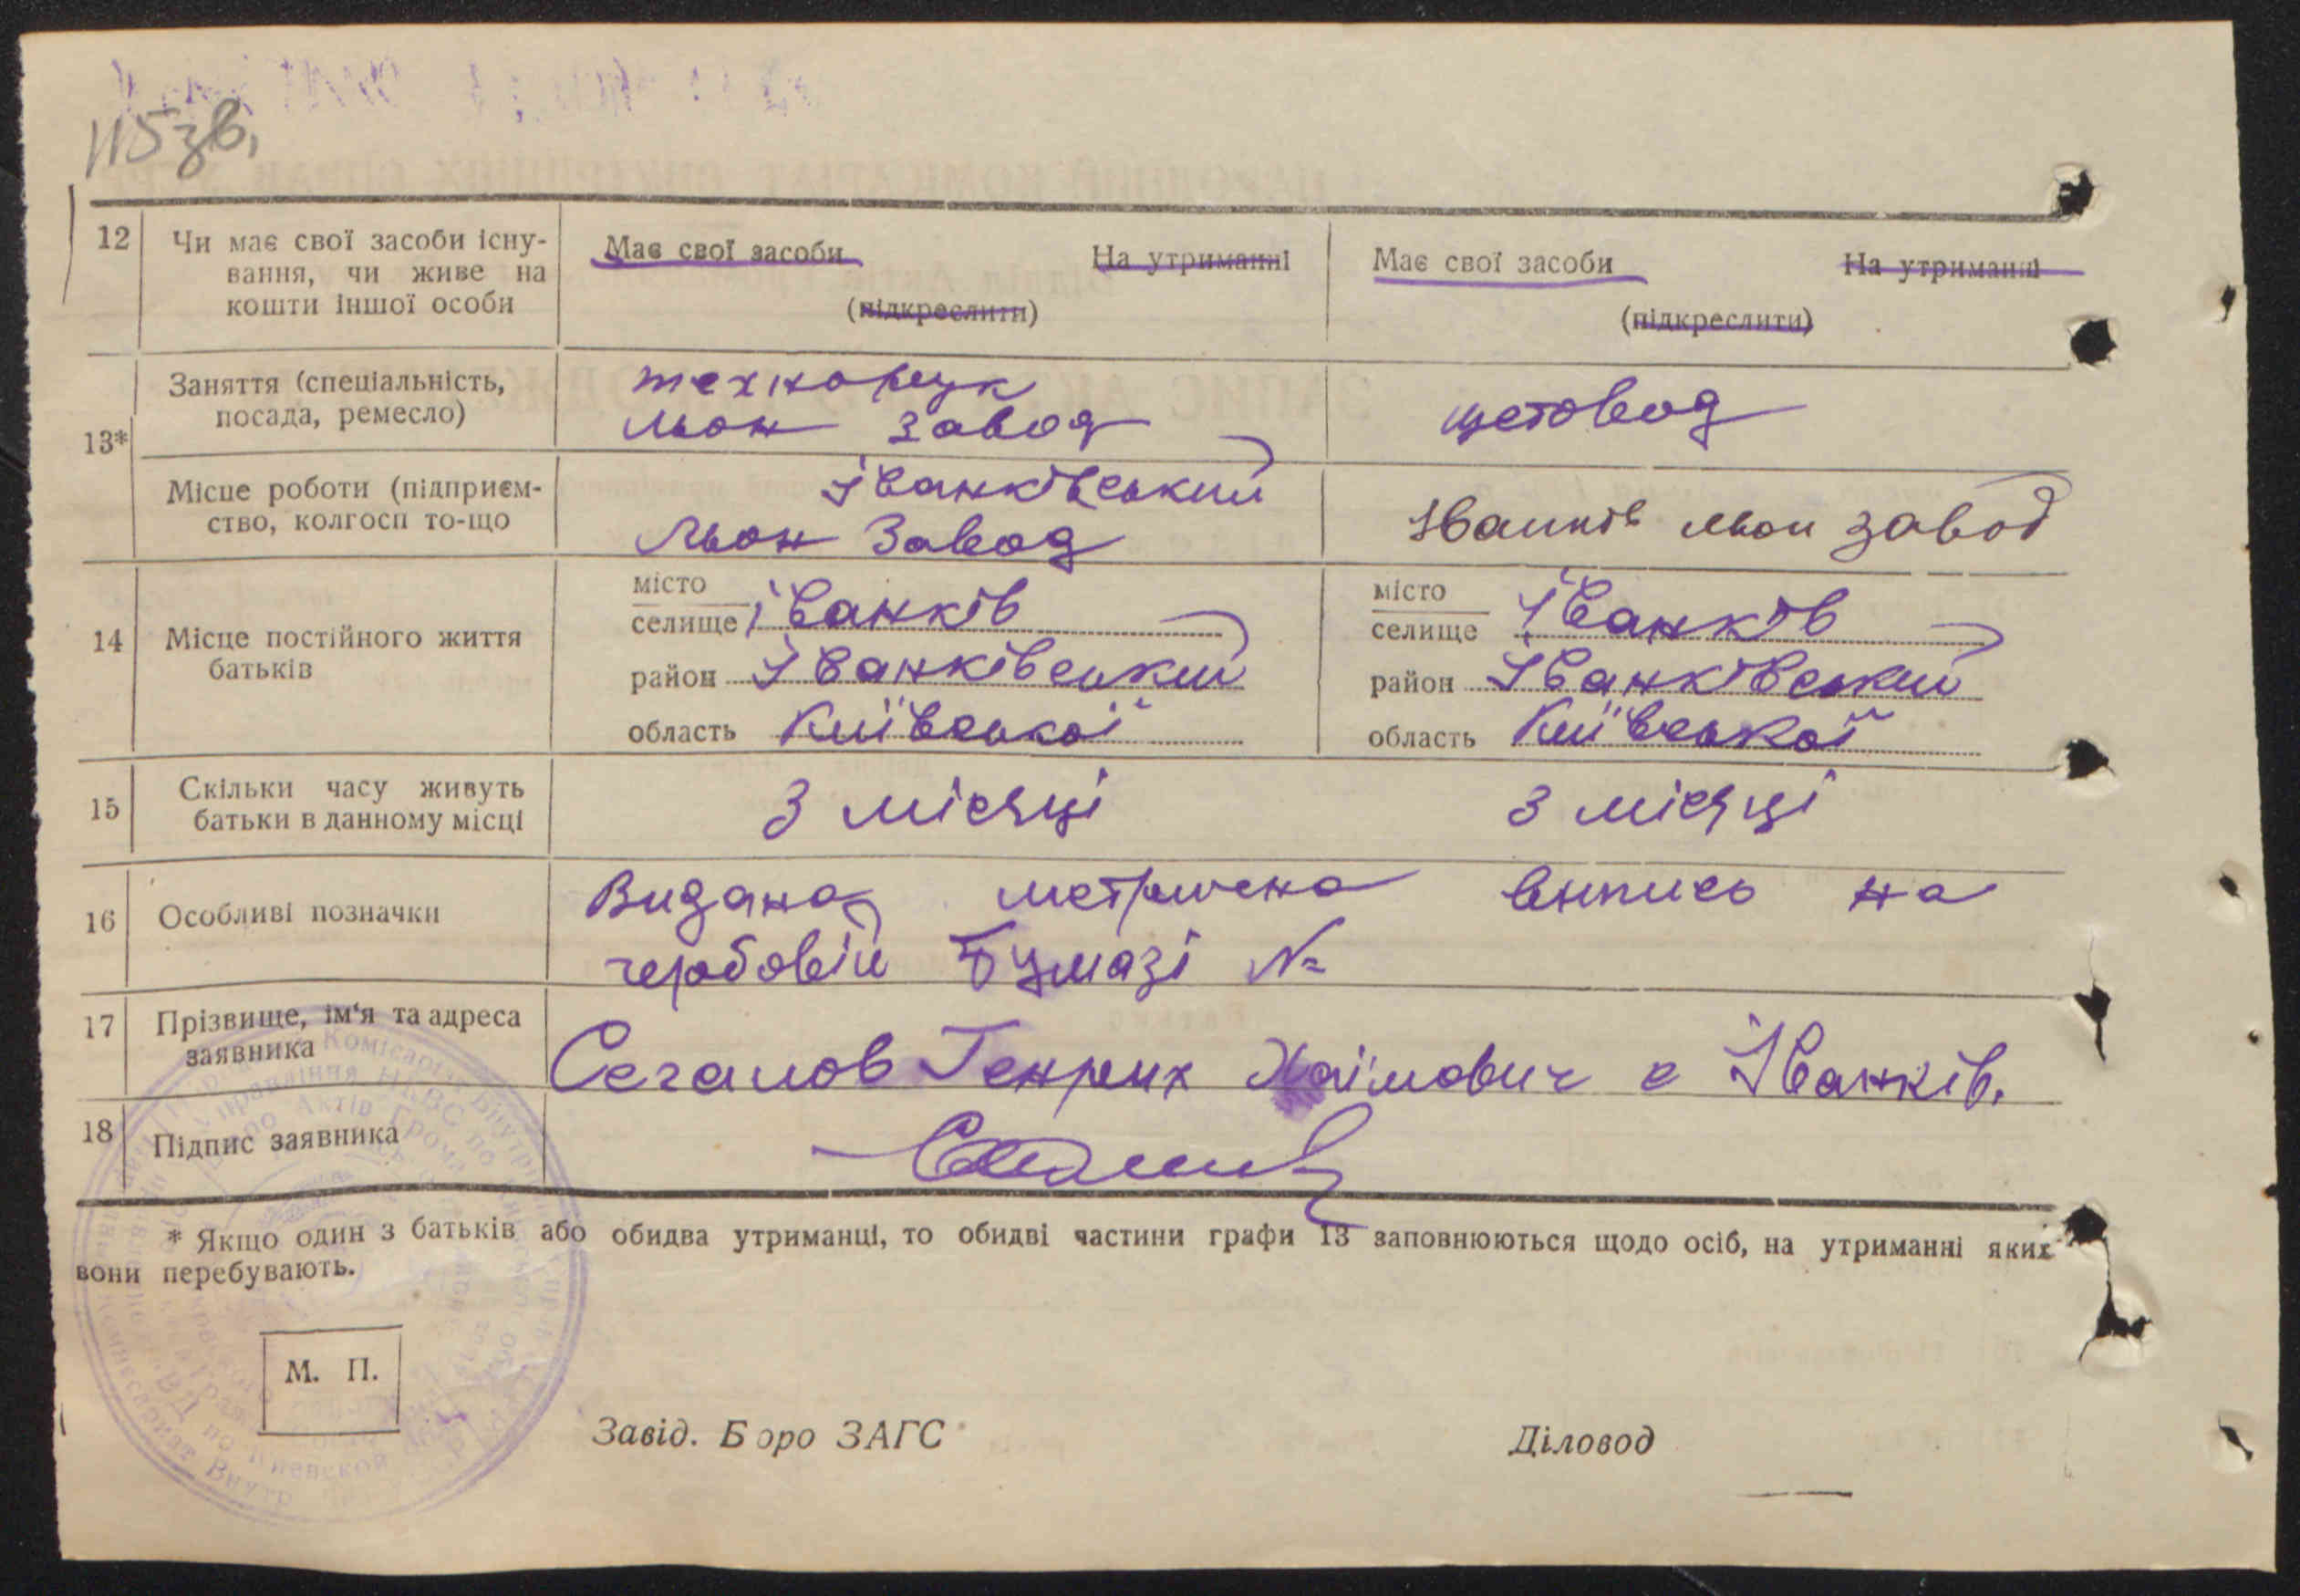 115зв.
12
Чи має свої засоби існу-
вання, чи живе на
кошти іншої особи
Має свої засоби На утриманні
(підкреслити)
Має свої засоби На утриманні
(підкреслити)
13*
Заняття (спеціальність,
посада, ремесло)
технорук
льон завод
щетовод
Місце роботи (підприєм-
ство, колгосп то-що
Іванківський
Льон Завод
Іванків льон завод
14
Місце постійного життя
батьків
місто
селище Іванків
район Іванківський
область Київської
місто
селище Іванків
район Іванківський
область Київської
15
Скільки часу живуть
батьки в данному місці
3 місяці
3 місяці
16
Особливі позначки
Видана метрична випись на
гербовій бумазі №
17
Прізвище, ім'я та адреса
заявника
Сегалов Генрих Хаїмович с Іванків.
18
Підпис заявника
* Якщо один з батьків або обидва утриманці, то обидві частини графи 13 заповнюються щодо осіб, на утриманні яких
вони перебувають.
М. П.
Завід. Бюро ЗАГС
Діловод